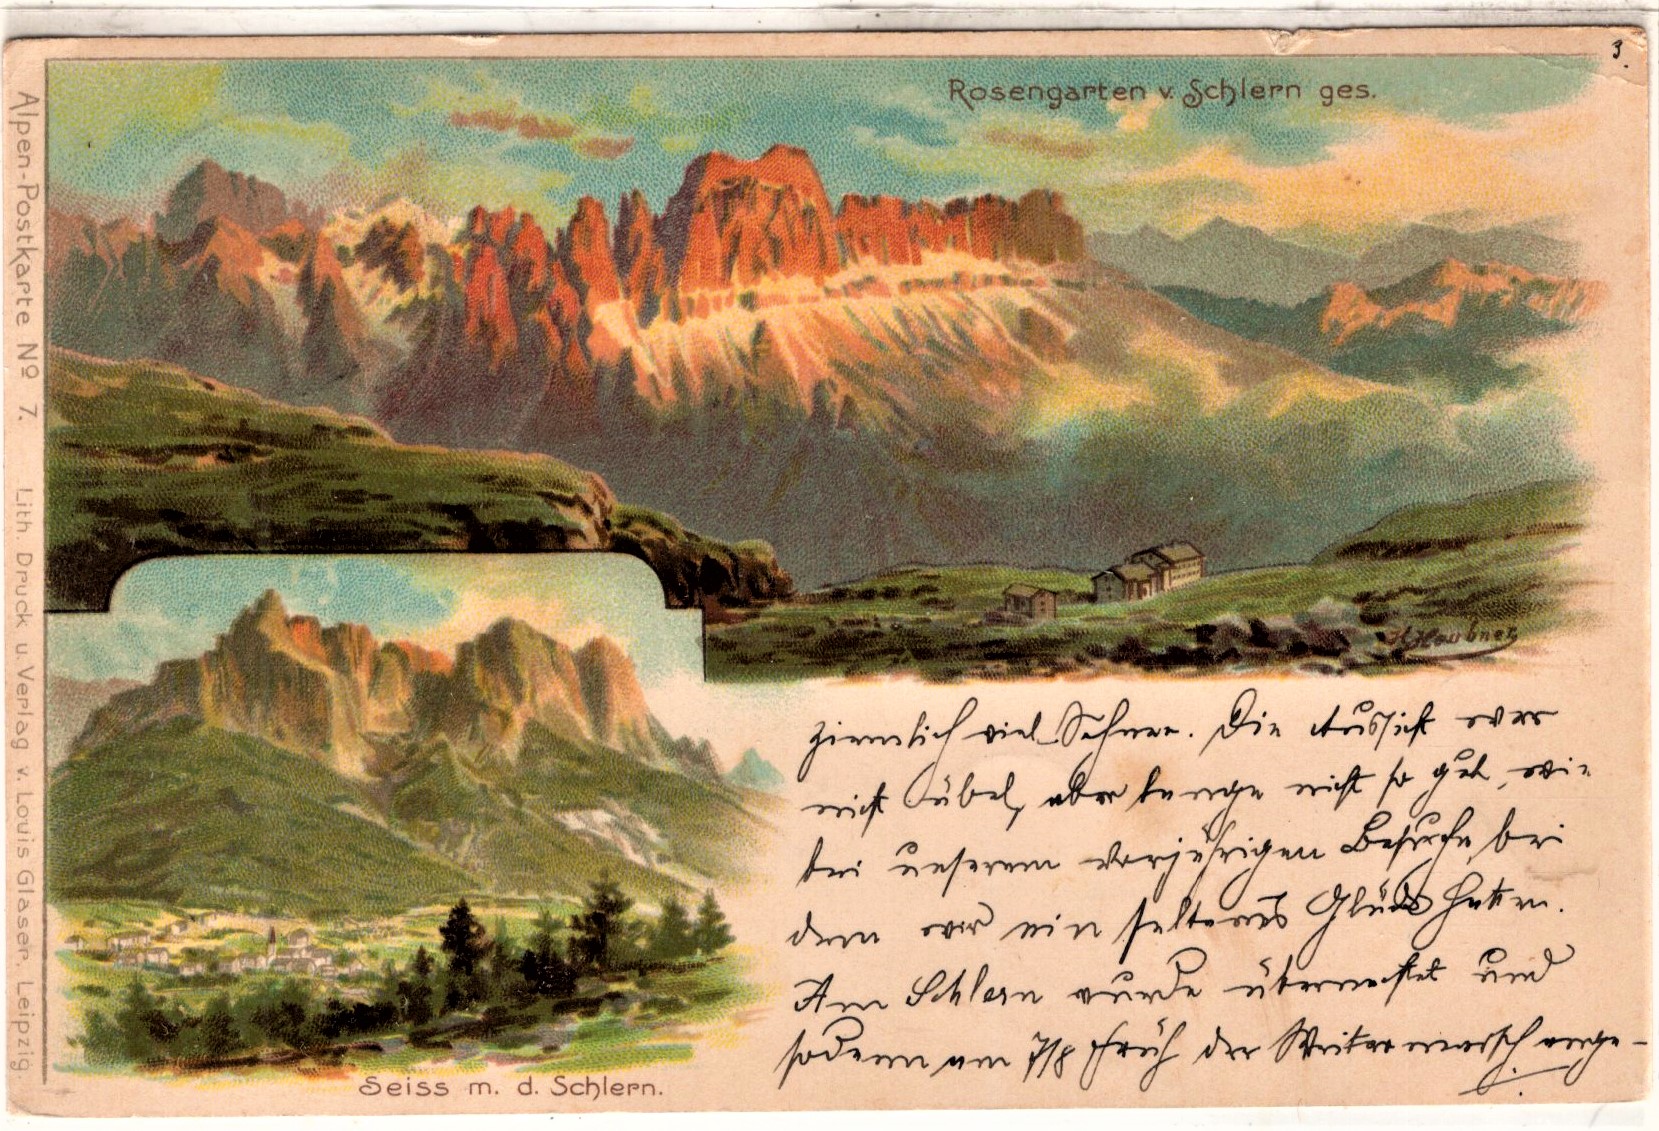 3.
Rosengarten v. Schlern ges.
Alpen-Postkarte No 7. Lith. Druck u. Verlag v. Louis Glaser, Leipzig.
H. Haubner
Seiss m. d. Schlern.
ziemlich viel Schnee. Die Aussicht war
nicht übel, aber lange nicht so gut, wie
bei unserem vorjährigen Besuche, bei
dem wir ein seltenes Glück hatten.
Am Schlern wurde übernachtet und
sodann am 7/8 früh der Weitermarsch ange-